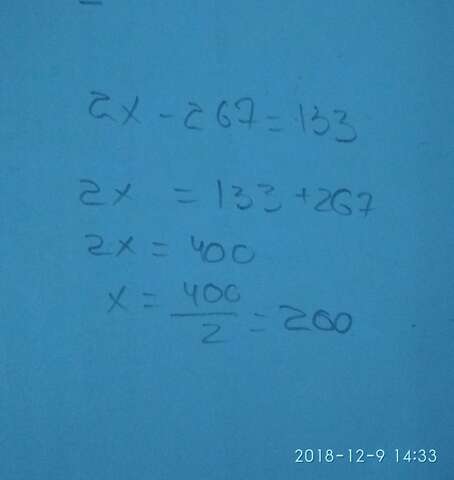 2x - 267 = 133
2x = 133 + 267
2x = 400
x = 400/2 = 200
2018-12-9 14:33